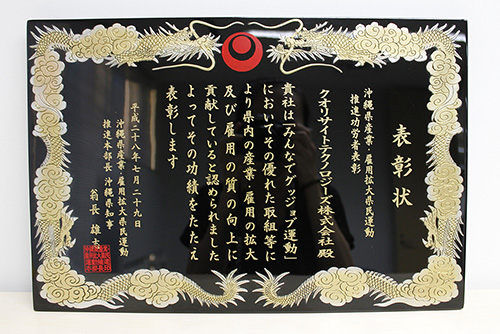 表彰状
沖縄県産業・雇用拡大県民運動
推進功労者表彰
クオリサイトテクノロジーズ株式会社 殿
貴社は「みんなでグッジョブ運動」
においてその優れた取組等に
より県内の産業・雇用の拡大
及び雇用の質の向上に
貢献していると認められました
よってその功績をたたえ
表彰します
平成二十八年七月二十九日
沖縄県産業・雇用拡大県民運動
推進本部長 沖縄県知事
翁長 雄志